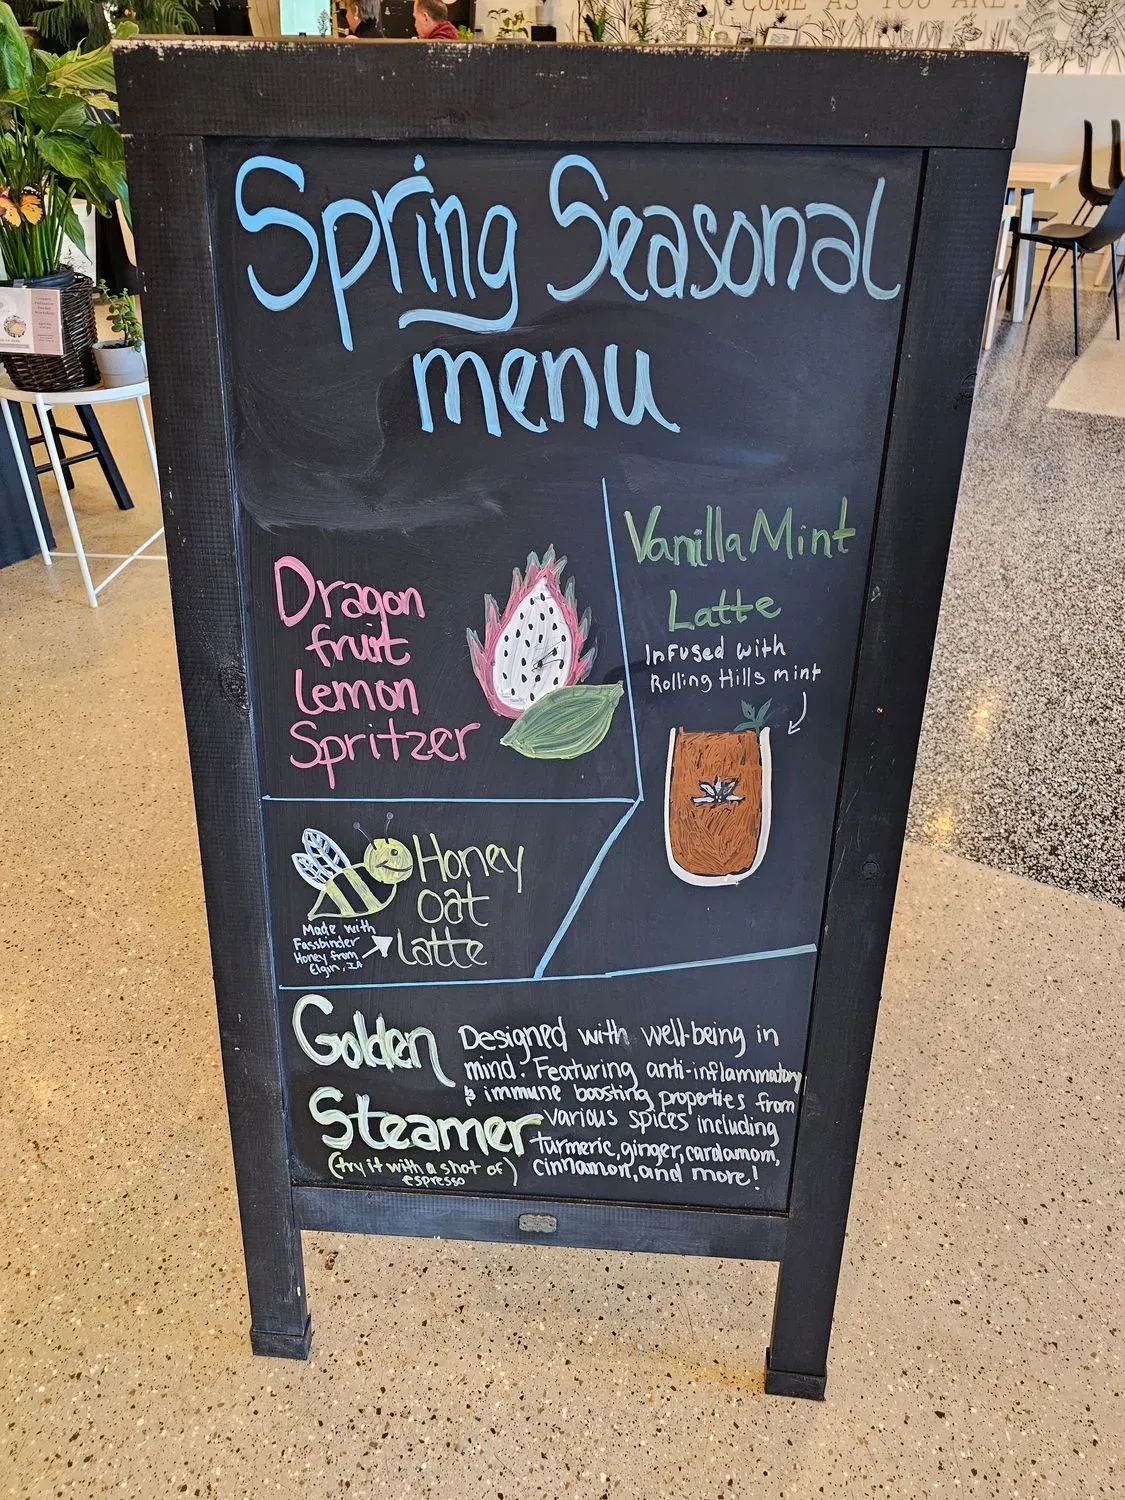 COME AS YOU ARE.
Spring Seasonal
menu
Dragon
fruit
lemon
Spritzer
Vanilla Mint
Latte
Infused with
Rolling Hills mint
Honey
oat
latte
Made with
Fassbinder
Honey from
Elgin, IA
Golden
Steamer
(try it with a shot of)
espresso
Designed with well-being in
mind. Featuring anti-inflammatory
& immune boosting properties from
various spices including
turmeric, ginger, cardamom,
cinnamon, and more!